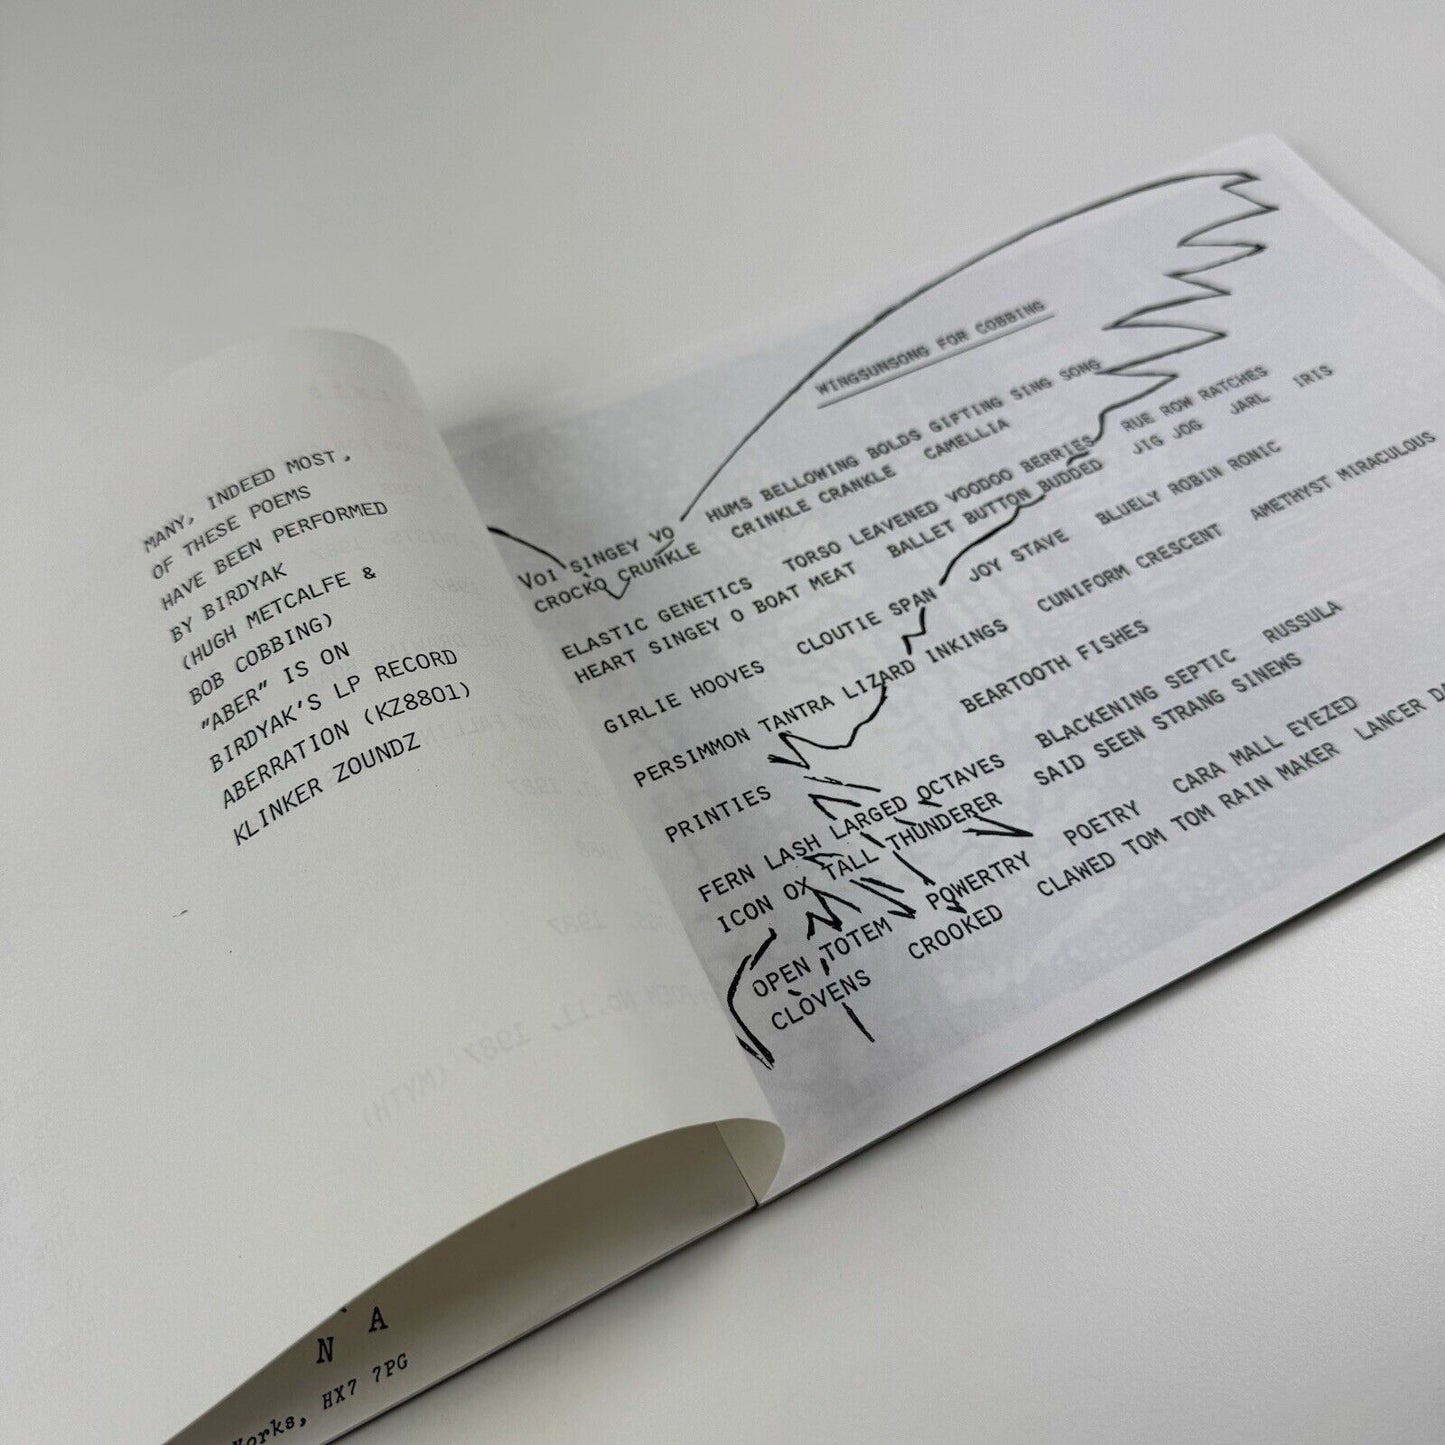 MANY, INDEED MOST,
OF THESE POEMS
HAVE BEEN PERFORMED
BY BIRDYAK
(HUGH METCALFE &
BOB COBBING)
"ABER" IS ON
BIRDYAK'S LP RECORD
ABERRATION (KZ8801)
KLINKER ZOUNDZ
N A
Works, HX7 7PG
WINGSUNSONG FOR COBBING
VOI SINGEY VO HUMS BELLOWING BOLDS GIFTING SING SONG
CROCKO CRUNKLE CRINKLE CRANKLE CAMELLIA
ELASTIC GENETICS TORSO LEAVENED VOODOO BERRIES RUE ROW RATCHES
HEART SINGEY O BOAT MEAT BALLET BUTTON BUDDED JIG JOG JARL IRIS
GIRLIE HOOVES CLOUTIE SPAN JOY STAVE BLUELY ROBIN RONIC
PERSIMMON TANTRA LIZARD INKINGS CUNIFORM CRESCENT AMETHYST MIRACULOUS
PRINTIES BEARTOOTH FISHES
FERN LASH LARGED OCTAVES BLACKENING SEPTIC RUSSULA
ICON OX TALL THUNDERER SAID SEEN STRANG SINEWS
OPEN TOTEM POWERTRY POETRY CARA MALL EYEZED
CLOVENS CROOKED CLAWED TOM TOM RAIN MAKER LANCER